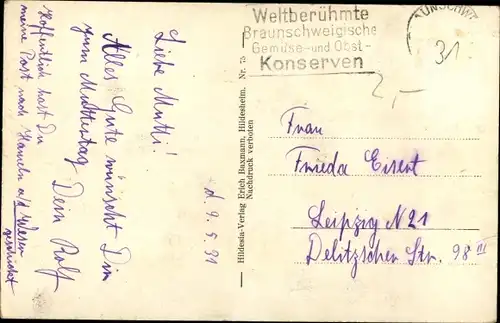 Weltberühmte
Braunschweigische
Gemüse- und Obst-
Konserven
31
2,-
d. 9.5.31
Liebe Mutti!
Alles Gute wünscht Dir
zum Muttertag Dein Rolf
Hoffentlich hast Du
meine Post nach Hameln a/d Weser
geschickt
Hildesia-Verlag Erich Buxmann, Hildesheim. Nr. 75
Nachdruck verboten
Frau
Frieda Eisert
Leipzig N 21
Delitzscher Str. 98 III